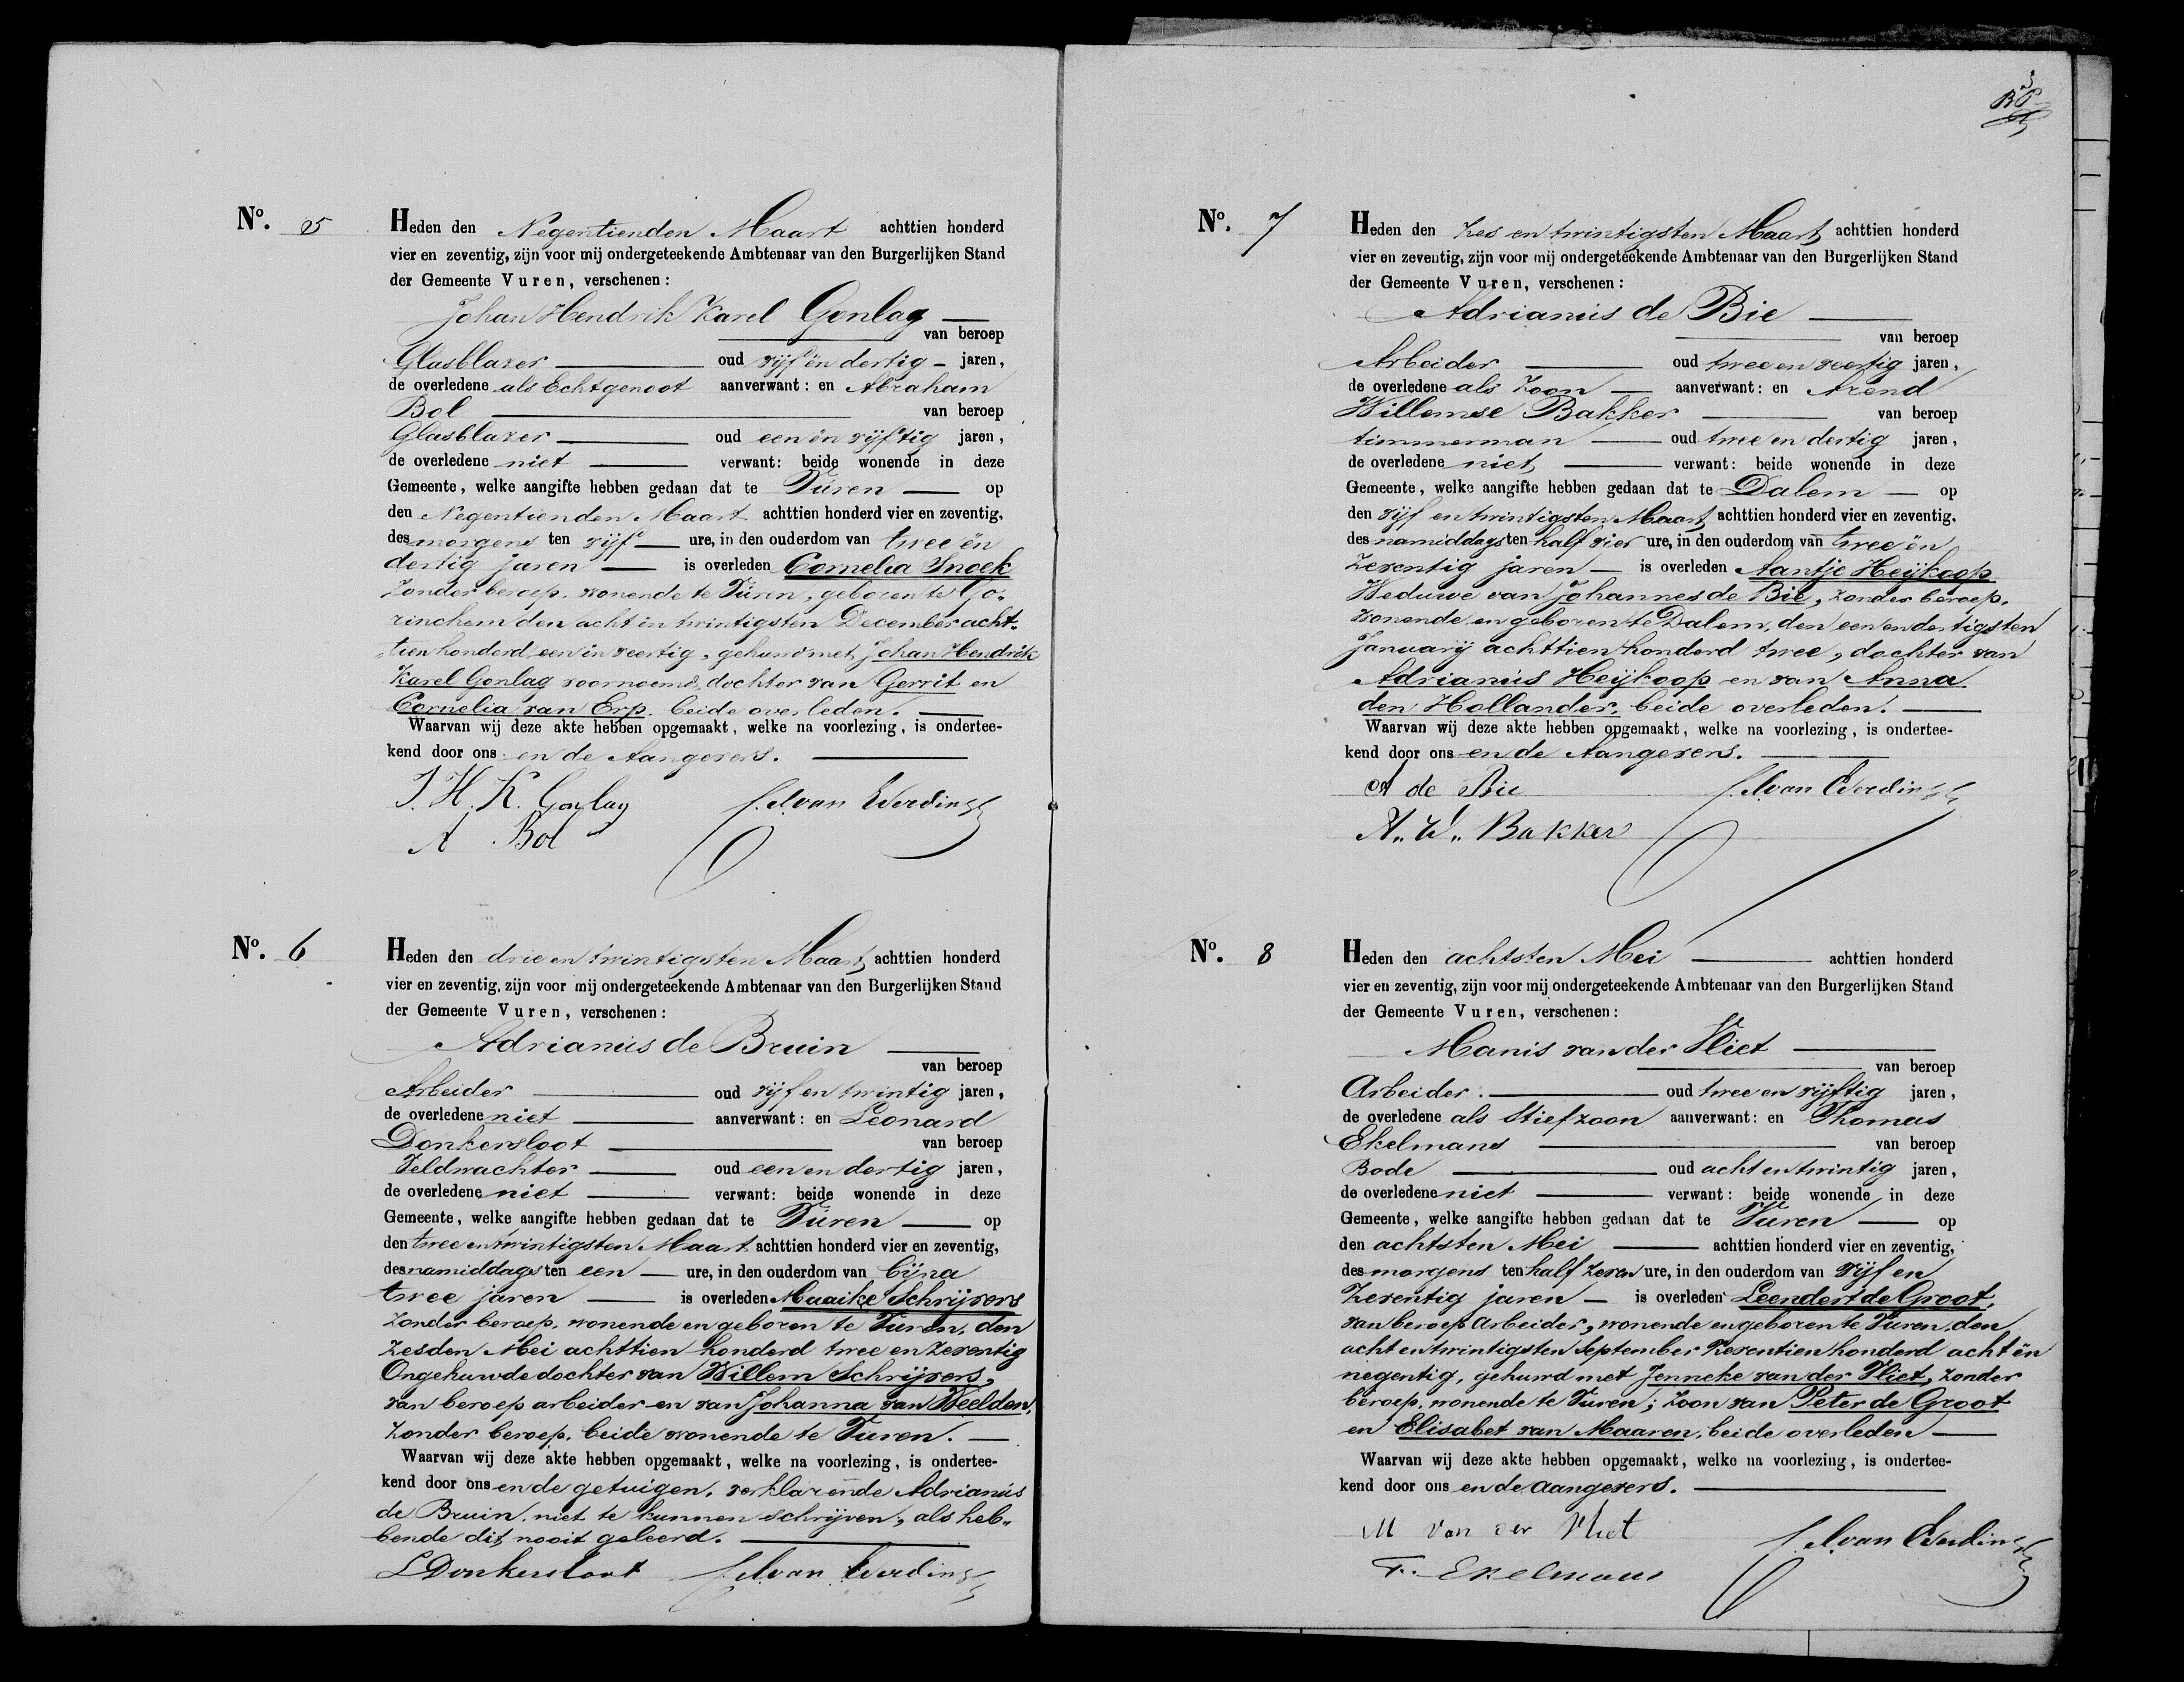 No. 5
Heden den Negentienden Maart achttien honderd
vier en zeventig, zijn voor mij ondergeteekende Ambtenaar van den Burgerlijken Stand
der Gemeente Vuren, verschenen:
Johan Hendrik Karel Gonlag
van beroep
Glasblazer oud vijf ën dertig jaren,
de overledene als Echtgenoot aanverwant: en Abraham
Bol van beroep
Glasblazer oud een ën vijftig jaren,
de overledene niet verwant: beide wonende in deze
Gemeente, welke aangifte hebben gedaan dat te Vuren op
den Negentienden Maart achttien honderd vier en zeventig,
des morgens ten vijf ure, in den ouderdom van twee ën
dertig jaren is overleden Cornelia Snoek
zonder beroep, wonende te Vuren, geboren te Go-
rinchem den acht ën twintigsten December acht-
tien honderd een ën veertig, gehuwd met Johan Hendrik
Karel Gonlag voornoemd, dochter van Gerrit en
Cornelia van Erp, beide overleden.
Waarvan wij deze akte hebben opgemaakt, welke na voorlezing, is ondertee-
kend door ons en de Aangevers.
J. H. K. Gonlag
A Bol
No. 6
Heden den drie en twintigsten Maart achttien honderd
vier en zeventig, zijn voor mij ondergeteekende Ambtenaar van den Burgerlijken Stand
der Gemeente Vuren, verschenen:
Adrianus de Bruin
van beroep
Arbeider oud vijf en twintig jaren,
de overledene niet aanverwant: en Leonard
Donkersloot van beroep
Veldwachter oud een en dertig jaren,
de overledene niet verwant: beide wonende in deze
Gemeente, welke aangifte hebben gedaan dat te Vuren op
den twee en twintigsten Maart achttien honderd vier en zeventig,
des namiddags ten een ure, in den ouderdom van bijna
twee jaren is overleden Maaike Schrijvers
zonder beroep, wonende en geboren te Vuren, den
zesden Mei achttien honderd twee en zeventig
Ongehuwde dochter van Willem Schrijvers,
van beroep arbeider en van Johanna van Weelden,
zonder beroep, beide wonende te Vuren.
Waarvan wij deze akte hebben opgemaakt, welke na voorlezing, is ondertee-
kend door ons en de getuigen, verklarende Adrianus
de Bruin, niet te kunnen schrijven, als heb-
bende dit nooit geleerd.
L Donkersloot
No. 7
Heden den zes en twintigsten Maart achttien honderd
vier en zeventig, zijn voor mij ondergeteekende Ambtenaar van den Burgerlijken Stand
der Gemeente Vuren, verschenen:
Adrianus de Bie
van beroep
Arbeider oud twee en veertig jaren,
de overledene als Zoon aanverwant: en Arend
Willemse Bakker van beroep
timmerman oud twee en dertig jaren,
de overledene niet verwant: beide wonende in deze
Gemeente, welke aangifte hebben gedaan dat te Dalem op
den vijf en twintigsten Maart achttien honderd vier en zeventig,
des namiddags ten half vier ure, in den ouderdom van twee ën
zeventig jaren is overleden Aantje Heijkoop
Weduwe van Johannes de Bie, zonder beroep,
wonende en geboren te Dalem, den een en dertigsten
Januarij achttien honderd twee, dochter van
Adrianus Heijkoop en van Anna
den Hollander, beide overleden.
Waarvan wij deze akte hebben opgemaakt, welke na voorlezing, is ondertee-
kend door ons en de Aangevers.
A de Bie
A. W. Bakker
No. 8
Heden den achtsten Mei achttien honderd
vier en zeventig, zijn voor mij ondergeteekende Ambtenaar van den Burgerlijken Stand
der Gemeente Vuren, verschenen:
Manis van der Vliet
van beroep
Arbeider oud twee en vijftig jaren,
de overledene als Stiefzoon aanverwant: en Thomas
Ekelmans van beroep
Bode oud acht en twintig jaren,
de overledene niet verwant: beide wonende in deze
Gemeente, welke aangifte hebben gedaan dat te Vuren op
den achtsten Mei achttien honderd vier en zeventig,
des morgens ten half zeven ure, in den ouderdom van vijf en
zeventig jaren is overleden Leendert de Groot,
van beroep arbeider, wonende en geboren te Vuren, den
acht en twintigsten September zeventien honderd acht ën
negentig, gehuwd met Jenneke van der Vliet, zonder
beroep, wonende te Vuren; zoon van Peter de Groot
en Elisabet van Maaren, beide overleden
Waarvan wij deze akte hebben opgemaakt, welke na voorlezing, is ondertee-
kend door ons en de aangevers.
M van der Vliet
T. Ekelmans